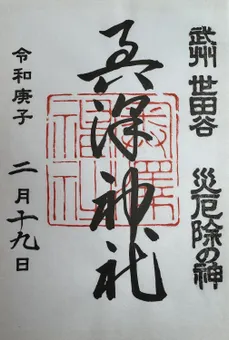 武州 世田谷 災厄除の神
奥澤神社
令和庚子 二月十九日